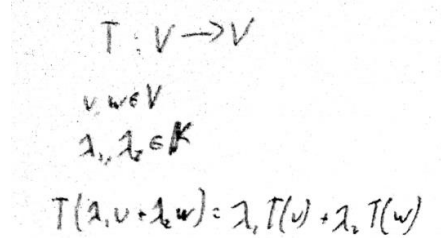 T : V → V
v, w ∈ V
λ₁, λ₂ ∈ K
T(λ₁v + λ₂w) = λ₁T(v) + λ₂T(w)